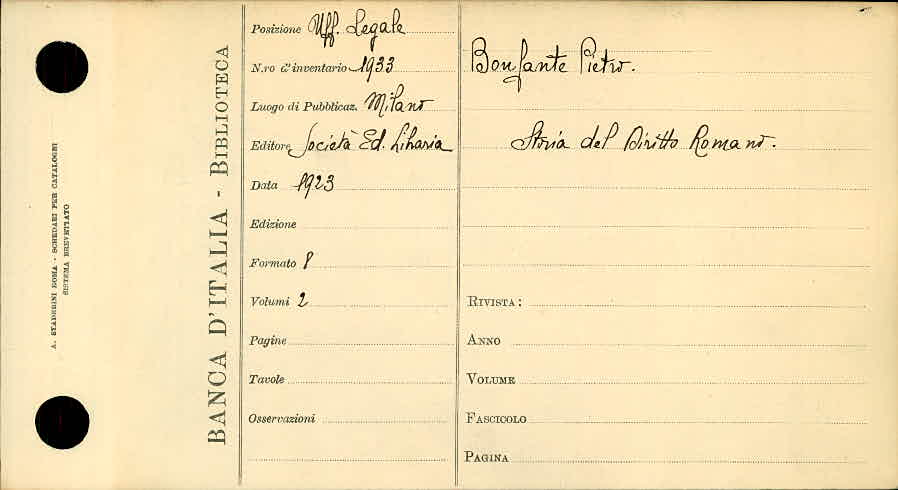 A. STADERINI ROMA - SCHEDARI PER CATALOGHI
SISTEMA BREVETTATO
BANCA D'ITALIA - BIBLIOTECA
Posizione Uff. Legale
N.ro d'inventario 1933
Luogo di Pubblicaz. Milano
Editore Società Ed. Libraria
Data 1923
Edizione
Formato 8
Volumi 2
Pagine
Tavole
Osservazioni
Bonfante Pietro.
Storia del Diritto Romano.
RIVISTA:
ANNO
VOLUME
FASCICOLO
PAGINA